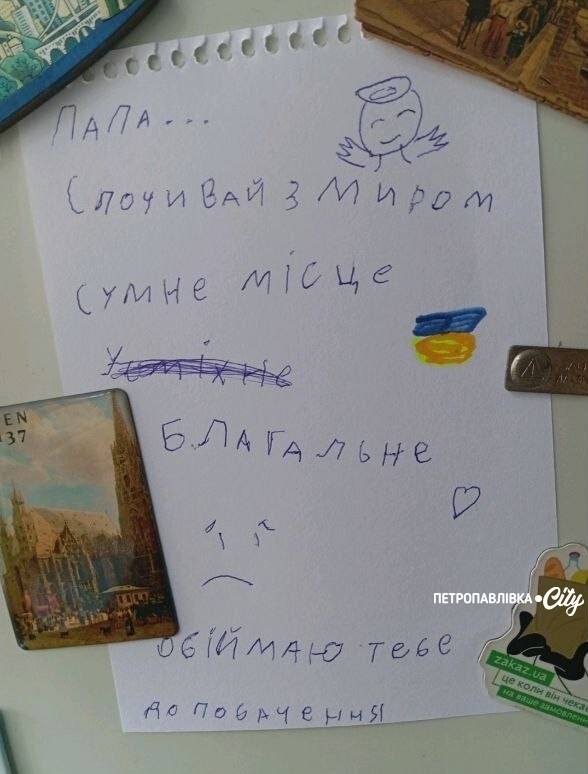 ПАПА...
СПОЧИВАЙ З МИРОМ
СУМНЕ МІСЦЕ
Усміхне
БЛАГАЛЬНЕ
ОБІЙМАЮ ТЕБЕ
ДО ПОБАЧЕННЯ
EN
37
ПЕТРОПАВЛІВКА•City
zakaz.ua
це коли він чекає
на ваше замовлення